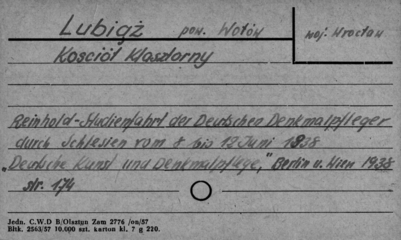 Lubiąż pow. Wołów woj. Wrocław
Kościół Klasztorny
Reinhold-Studienfahrt der Deutschen Denkmalpfleger
durch Schlesien vom 8 bis 12 Juni 1938
„Deutsche Kunst und Denkmalpflege," Berlin u. Wien 1938
str. 174
Jedn. C.W.D B/Olsztyn Zam 2776 /on/57
Bltk. 2563/57 10.000 szt. karton kl. 7 g 220.